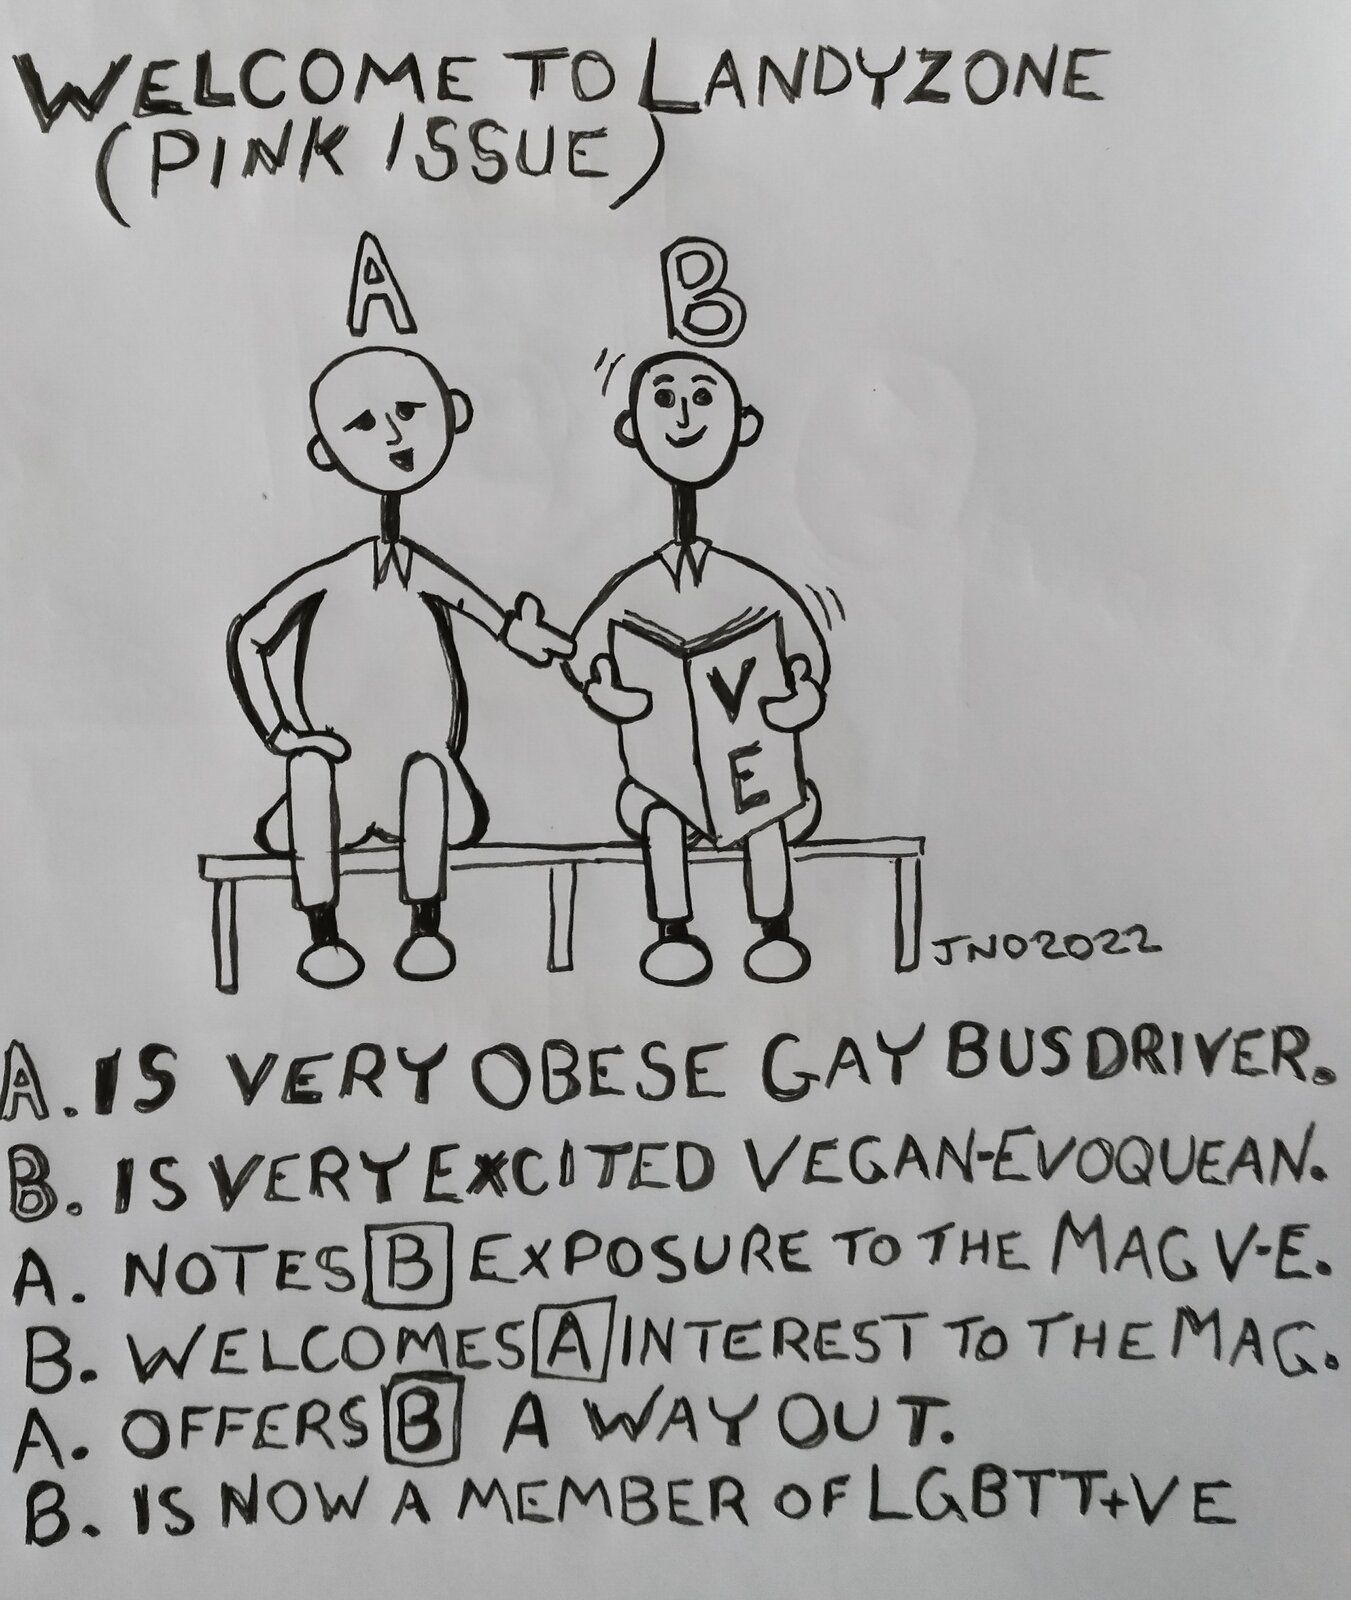 WELCOME TO LANDYZONE
(PINK ISSUE)
A
B
V
E
JNO2022
A. IS VERY OBESE GAY BUSDRIVER.
B. IS VERY EXCITED VEGAN-EVOQUEAN.
A. NOTES B EXPOSURE TO THE MAG V-E.
B. WELCOMES A INTEREST TO THE MAG.
A. OFFERS B A WAY OUT.
B. IS NOW A MEMBER OF LGBTT+VE